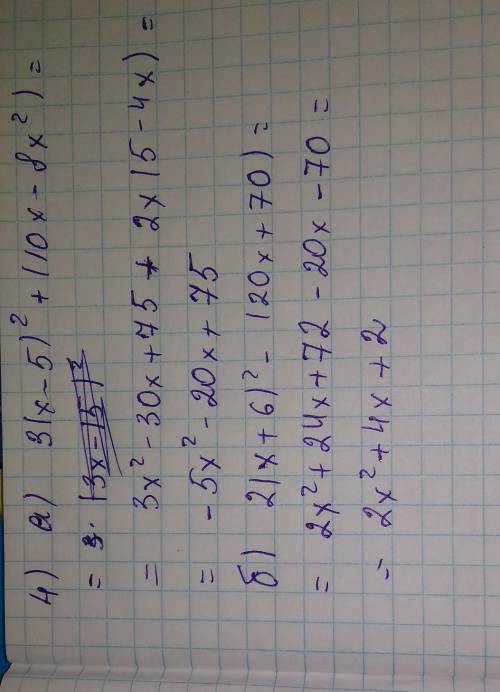 4) а) 3(x-5)² + (10x - 8x²) =
= 3x² - 30x + 75 + 2x(5 - 4x) =
= -5x² - 20x + 75
б) 2(x + 6)² - (20x + 70) =
= 2x² + 24x + 72 - 20x - 70 =
= 2x² + 4x + 2